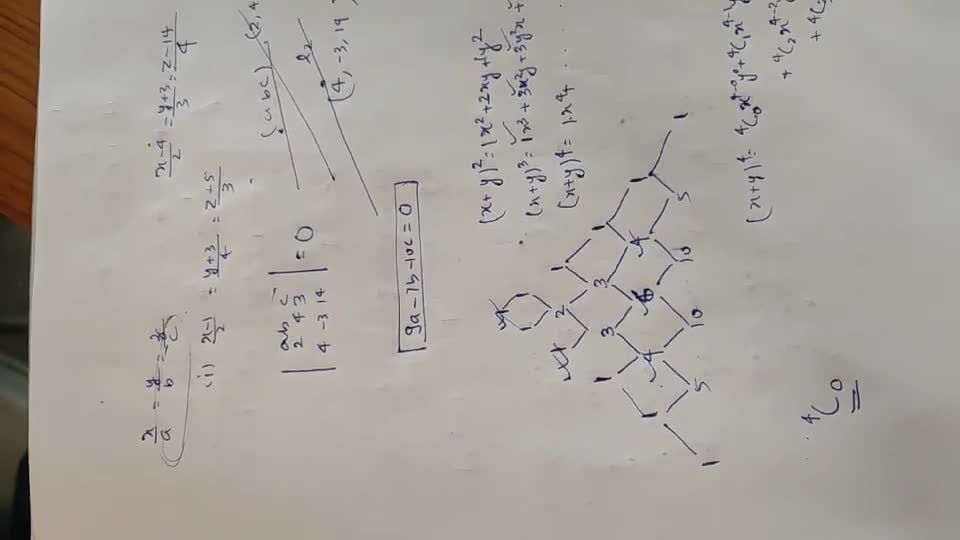 x/a = y/b = z/c
(i) x-1/2 = y+3/4 = z+5/3
x-4/2 = y+3/3 = z-14/4
| a b c |
| 2 4 3 | = 0
| 4 -3 14 |
(abc) (2,4
l2
(4, -3, 14
9a-7b-10c=0
(x+y)² = 1x²+2xy+1y²
(x+y)³ = 1x³+3x²y+3y²x+
(x+y)⁴ = 1x⁴+ . . . .
1 1
1 2 1
1 3 3 1
1 4 6 4 1
1 5 10 10 5 1
(x+y)⁴ = ⁴C₀x⁴⁻⁰y⁰+⁴C₁x⁴⁻
+ ⁴C₂x⁴⁻²
+ ⁴C
⁴C₀